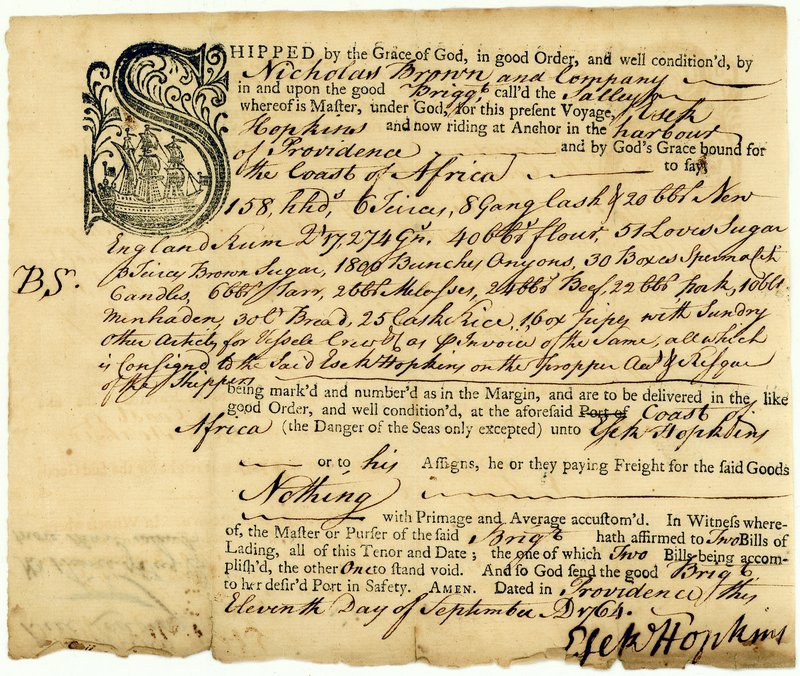 SHIPPED by the Grace of God, in good Order, and well condition'd, by
Nicholas Brown and Company
in and upon the good Brigg.t call'd the Salley
whereof is Master, under God, for this present Voyage, Esek
Hopkins and now riding at Anchor in the harbour
of Providence and by God's Grace bound for
the Coast of Africa to say,
158, hhds, 6 Teirces, 8 Gang Cask & 20 bbls New
England Rum Qt 17,274 Gs. 40 bbs flour, 51 Loves Sugar
Teirces Brown Sugar, 1800 Bunches Onyons, 30 Boxes Spermaceti
B S.
Candles, 6 bbl Tarr, 2 bbl Molosses, 24 bbs Beef, 22 bbl pork, 10 bbls
Menhaden, 30 Ct Bread, 25 Cask Rice, 1 box pipes with Sundry
Other Articles for Vessels Crew & as Invoice of the Same, all which
is Consigned to the Said Esek Hopkins on the propper & Risque
of the Shippers
being mark'd and number'd as in the Margin, and are to be delivered in the like
good Order, and well condition'd, at the aforesaid Port of Coast of
Africa (the Danger of the Seas only excepted) unto Esek Hopkins
or to his Assigns, he or they paying Freight for the said Goods
Nothing
with Primage and Average accustom'd. In Witness where-
of, the Master or Purser of the said Brigt hath affirmed to Two Bills of
Lading, all of this Tenor and Date; the one of which Two Bills being accom-
plish'd, the other One to stand void. And so God send the good Brigt
to her desir'd Port in Safety. AMEN. Dated in Providence this
Eleventh Day of September AD 1764.
Esek Hopkins